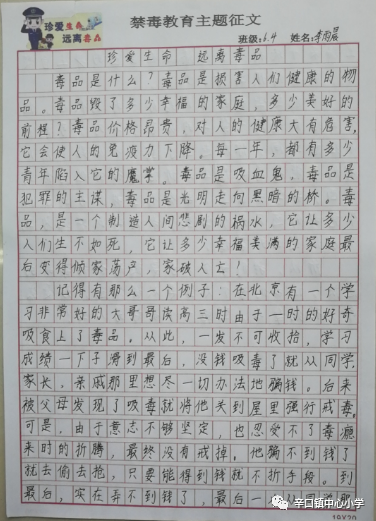 珍爱生命
远离毒品
禁毒教育主题征文
班级:6.4 姓名:李雨晨
珍爱生命 远离毒品
毒品是什么?毒品是损害人们健康的物
品。毒品毁了多少幸福的家庭,多少美好的
前程?毒品价格昂贵,对人的健康大有危害,
它会使人的免疫力下降。每一年,都有多少
青年陷入它的魔掌。毒品是吸血鬼,毒品是
犯罪的主谋,毒品是光明走向黑暗的桥。毒
品,是一个制造人间悲剧的祸水,它让多少
人们生不如死,它让多少幸福美满的家庭最
后变得倾家荡产,家破人亡!
记得有那么一个例子:在北京有一个学
习非常好的大哥哥读高三时由于一时的好奇
吸食上了毒品。从此,一发不可收拾,学习
成绩一下子滑到最后,没钱吸毒了就从同学,
家长,亲戚那里想尽一切办法地骗钱。后来
被父母发现了吸毒就将他关到屋里强行戒毒,
可是,由于意志不够坚定,也忍受不了毒瘾
来时的折腾,最终没有戒掉。他骗不到钱了
就去偷去抢,只要能得到钱就不折手段。到
最后,实在弄不到钱了,最后一
辛口镇中心小学